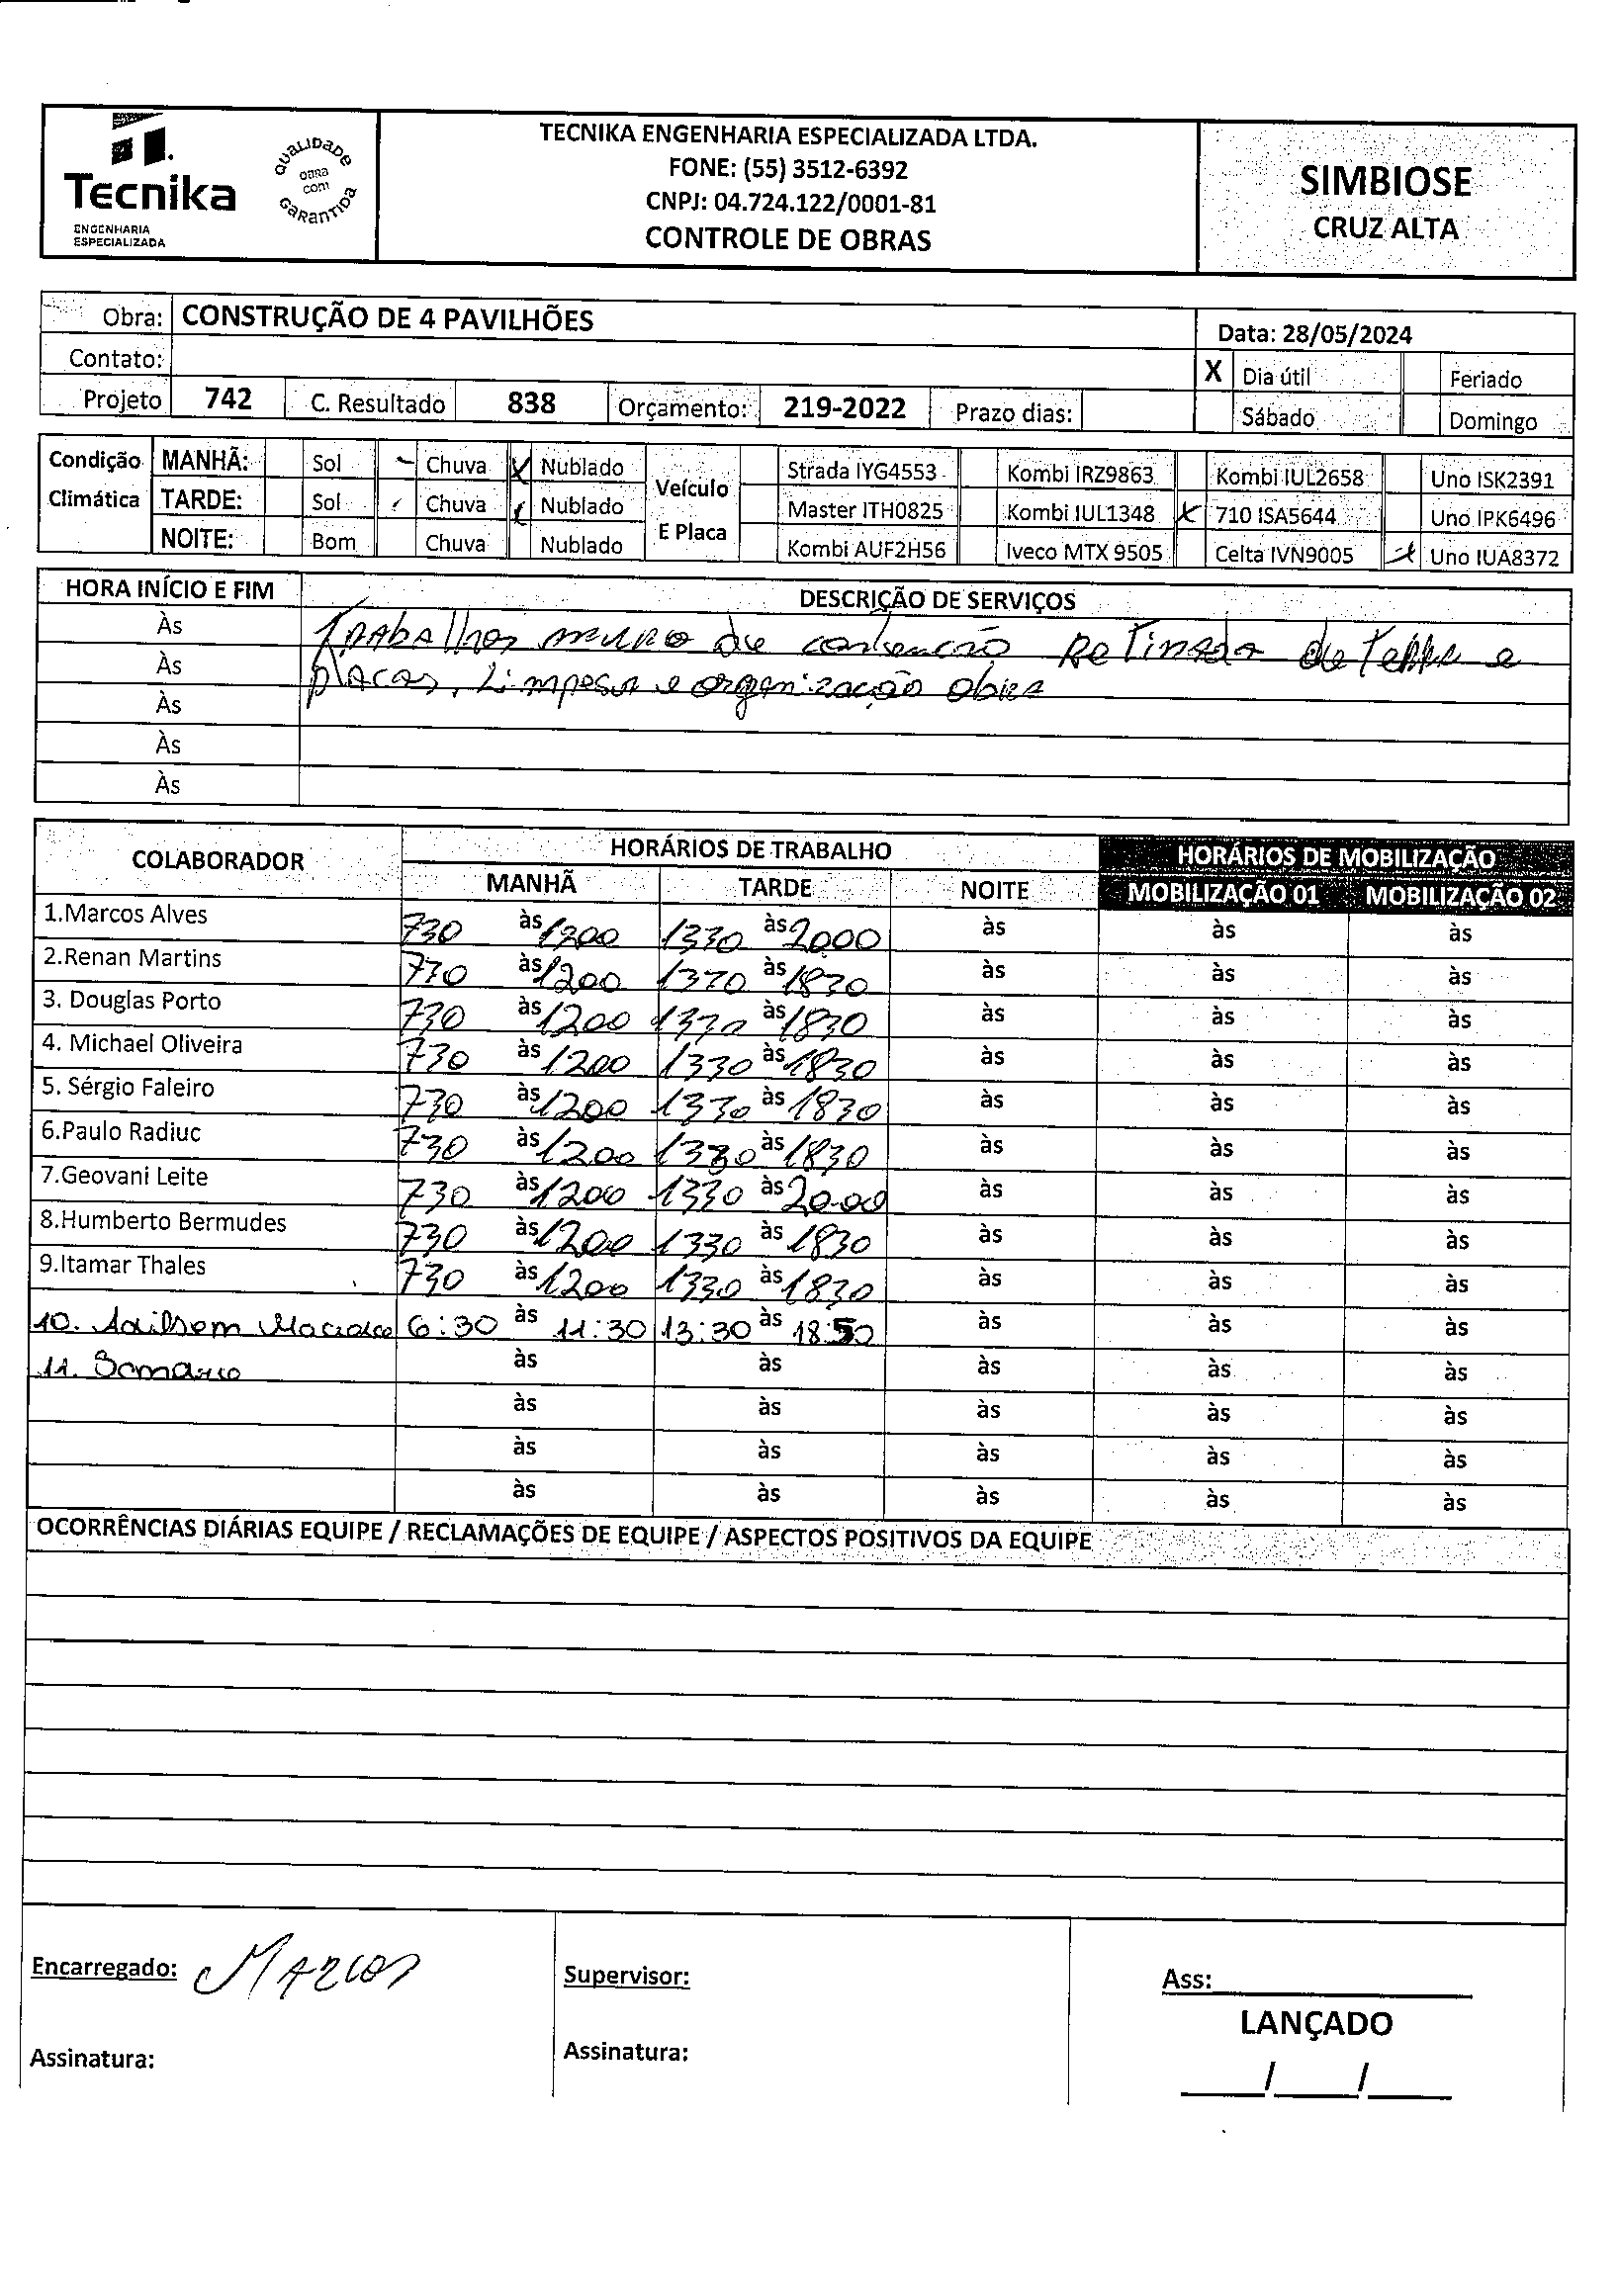 Tecnika
ENGENHARIA
ESPECIALIZADA
QUALIDADE
OBRA
COM
GARANTIDA
TECNIKA ENGENHARIA ESPECIALIZADA LTDA.
FONE: (55) 3512-6392
CNPJ: 04.724.122/0001-81
CONTROLE DE OBRAS
SIMBIOSE
CRUZ ALTA
Obra: CONSTRUÇÃO DE 4 PAVILHÕES
Data: 28/05/2024
Contato:
X Dia útil Feriado
Projeto 742 C. Resultado 838 Orçamento: 219-2022 Prazo dias:
Sábado Domingo
Condição Climática
MANHÃ: Sol Chuva X Nublado
TARDE: Sol Chuva Nublado
NOITE: Bom Chuva Nublado
Veículo
E Placa
Strada IYG4553 Kombi IRZ9863 Kombi IUL2658 Uno ISK2391
Master ITH0825 Kombi IUL1348 X 710 ISA5644 Uno IPK6496
Kombi AUF2H56 Iveco MTX 9505 Celta IVN9005 X Uno IUA8372
HORA INÍCIO E FIM DESCRIÇÃO DE SERVIÇOS
Às Trabalhos muro de contencão Retirada de Terra e
Às placas, Limpesa e organização obra
Às
Às
Às
COLABORADOR HORÁRIOS DE TRABALHO HORÁRIOS DE MOBILIZAÇÃO
MANHÃ TARDE NOITE MOBILIZAÇÃO 01 MOBILIZAÇÃO 02
1.Marcos Alves 730 às 1200 1330 às 2000 às às às
2.Renan Martins 730 às 1200 1330 às 1830 às às às
3. Douglas Porto 730 às 1200 1330 às 1830 às às às
4. Michael Oliveira 730 às 1200 1330 às 1830 às às às
5. Sérgio Faleiro 730 às 1200 1330 às 1830 às às às
6.Paulo Radiuc 730 às 1200 1330 às 1830 às às às
7.Geovani Leite 730 às 1200 1330 às 2000 às às às
8.Humberto Bermudes 730 às 1200 1330 às 1830 às às às
9.Itamar Thales 730 às 1200 1330 às 1830 às às às
10. 6:30 às 11:30 13:30 às 18:50 às às às
11. às às às às às
às às às às às
às às às às às
às às às às às
OCORRÊNCIAS DIÁRIAS EQUIPE / RECLAMAÇÕES DE EQUIPE / ASPECTOS POSITIVOS DA EQUIPE
Encarregado: MARCOS
Supervisor:
Ass:
LANÇADO
Assinatura:
Assinatura:
____/____/____